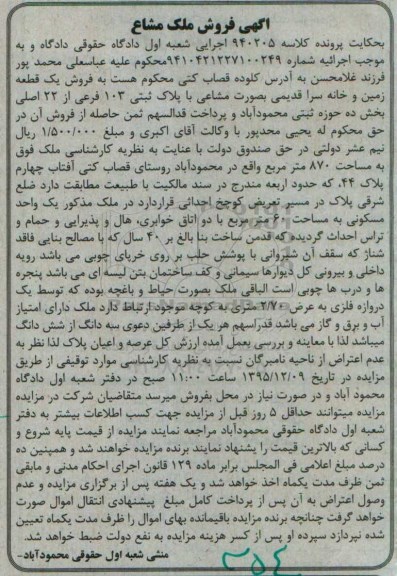 آگهی فروش ملک مشاع
بحکایت پرونده کلاسه ۹۴۰۲۰۵ اجرایی شعبه اول دادگاه حقوقی دادگاه و به
موجب اجرائیه شماره ۹۴۱۰۴۲۱۲۲۷۱۰۰۲۴۹محکوم علیه عباسعلی محمد پور
فرزند غلامحسن به آدرس کلوده قصاب کتی محکوم هست به فروش یک قطعه
زمین و خانه سرا قدیمی بصورت مشاعی با پلاک ثبتی ۱۰۳ فرعی از ۲۲ اصلی
بخش ده حوزه ثبتی محمودآباد و پرداخت قدالسهم ثمن حاصله از فروش آن در
حق محکوم له یحیی محدپور با وکالت آقای اکبری و مبلغ ۱/۵۰۰/۰۰۰ ریال
نیم عشر دولتی در حق صندوق دولت با عنایت به نظریه کارشناسی ملک فوق
به مساحت ۸۷۰ متر مربع واقع در محمودآباد روستای قصاب کتی آفتاب چهارم
پلاک ۴۴، که حدود اربعه مندرج در سند مالکیت با طبیعت مطابقت دارد ضلع
شرقی پلاک در مسیر تعریض کوچخ احداثی قراردارد در ملک مذکور یک واحد
مسکونی به مساحت ۶۰ متر مربع با دو اتاق خوابری، هال و پذیرایی و حمام و
تراس احداث گردیده که قدمن ساخت بنا بالغ بر ۴۰ سال که با مصالح بنایی فاقد
شناژ که سقف آن شیروانی با پوشش حلب بر روی خرپای چوبی می باشد رویه
داخلی و بیرونی کل دیوارها سیمانی و کف ساختمان بتن لیسه ای می باشد پنجره
ها و درب ها چوبی است الباقی ملک بصورت حیاط و باغچه بوده که توسط یک
دروازه فلزی به عرض ۲/۷۰ متری به کوچه موجود ارتباط دارد ملک دارای امتیاز
آب و برق و گاز می باشد قدراسهم هر یک از طرفین دعوی سه دانگ از شش دانگ
میباشد لذا با معاینه و بررسی بعمل آمده ارزش کل عرصه و اعیان پلاک لذا نظر به
عدم اعتراض از ناحیه نامبرگان نسبت به نظریه کارشناسی موارد توقیفی از طریق
مزایده در تاریخ ۱۳۹۵/۱۲/۰۹ ساعت ۱۱:۰۰ صبح در دفتر شعبه اول دادگاه
محمود آباد و در صورت نیاز در محل بفروش میرسد متقاضیان شرکت در مزایده
مزایده میتوانند حداقل ۵ روز قبل از مزایده جهت کسب اطلاعات بیشتر به دفتر
شعبه اول دادگاه حقوقی محمودآباد مراجعه نمایند مزایده از قیمت پایه شروع و
کسانی که بالاترین قیمت را پشنهاد نمایند برنده مزایده خواهند شد و همپنین ده
درصد مبلغ اعلامی فی المجلس برابر ماده ۱۲۹ قانون اجرای احکام مدنی و مابقی
ثمن ظرف مدت یکماه اخذ خواهد شد و یک هفته پس از برگزاری مزایده و عدم
وصول اعتراض به آن پس از پرداخت کامل مبلغ پیشنهادی انتقال اموال صورت
خواهد گرفت چنانچه برنده مزایده باقیمانده بهای اموال را ظرف مدت یکماه تعیین
شده نپردازد سپرده او پس از کسر هزینه مزایده به نفع دولت ضبط خواهد شد.
منشی شعبه اول حقوقی محمودآباد-
۳۵۴